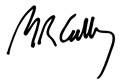 MR Culley